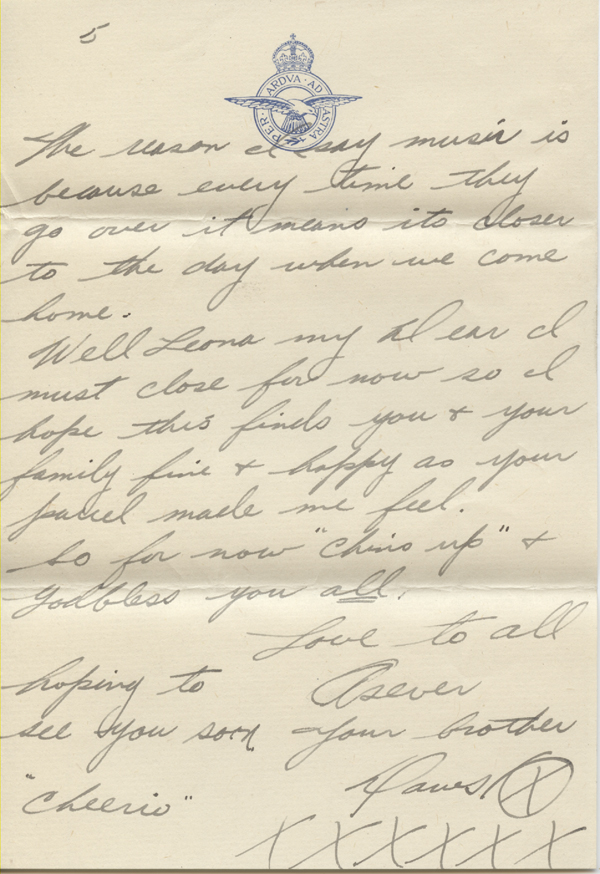 5
PER · ARDVA · AD ASTRA
The reason I say music is
because every time they
go over it means its closer
to the day when we come
home.
Well Leona my dear I
must close for now so I
hope this finds you & your
family fine & happy as your
parcel made me feel.
So for now "chins up" &
Godbless you all.
Love to all
hoping to Asever
see you soon your brother
"Cheerio"
X
X X X X X X